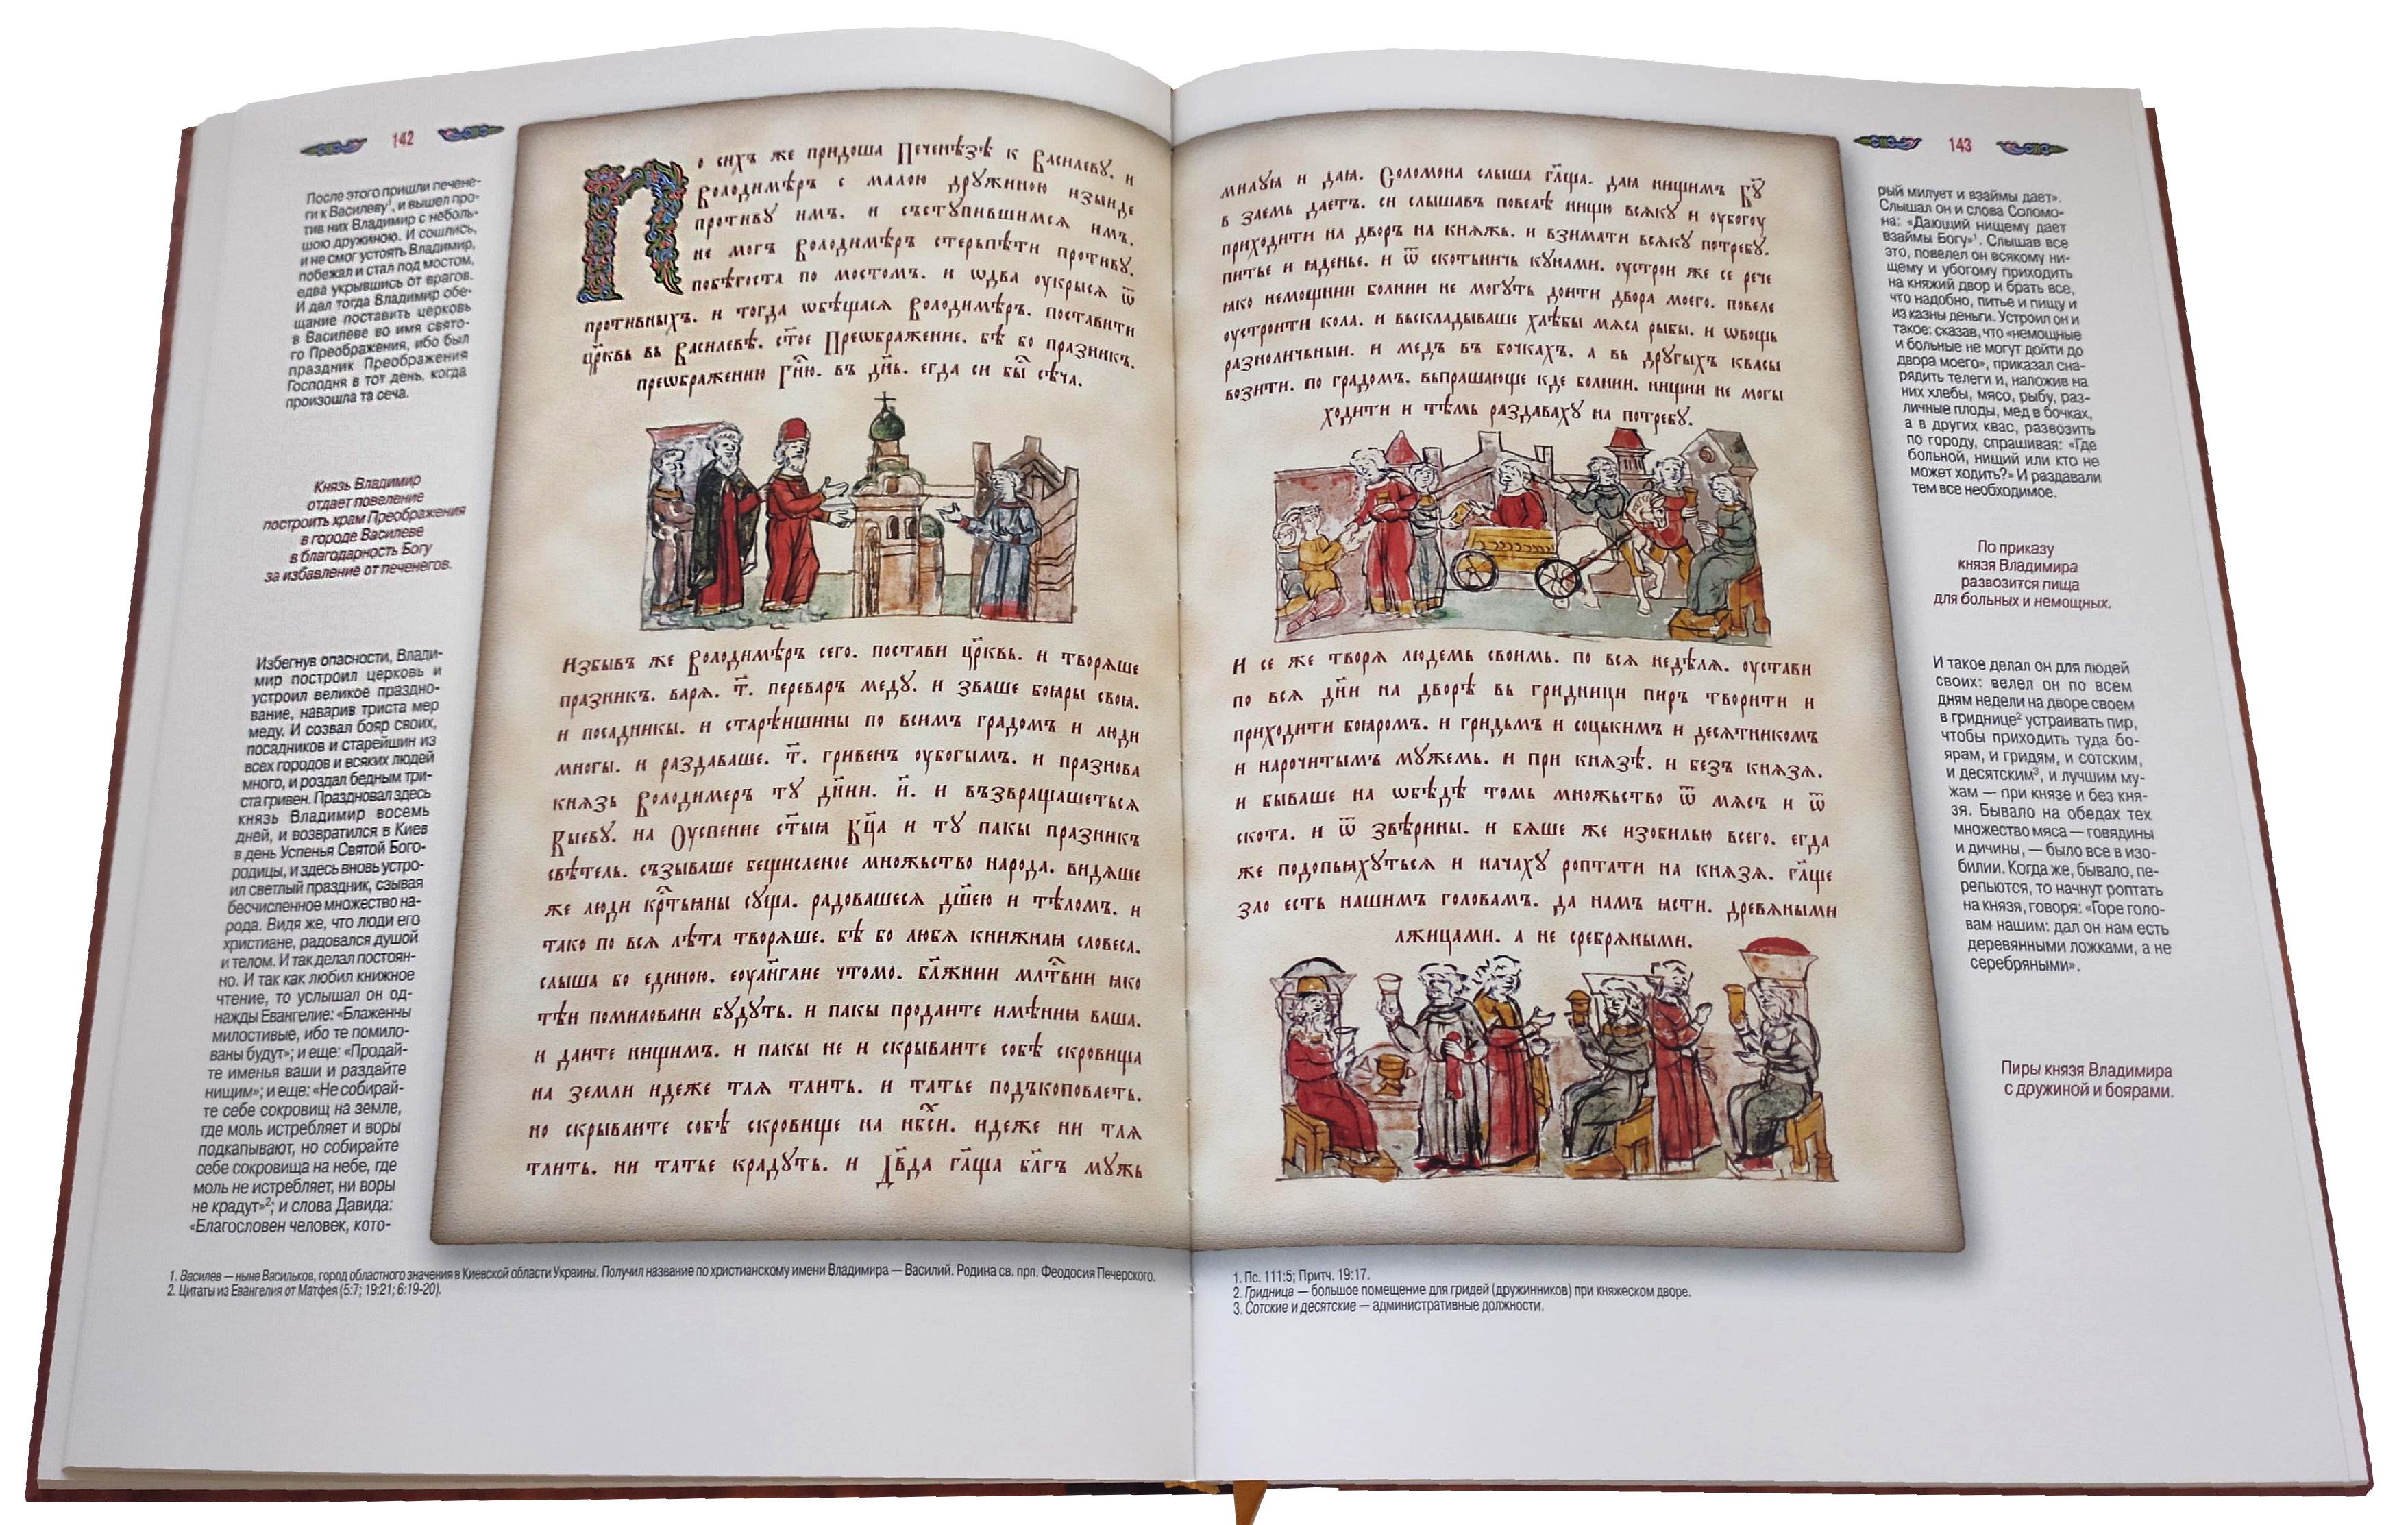 142
После этого пришли печене-
ги к Василеву¹, и вышел про-
тив них Владимир с неболь-
шою дружиною. И сошлись,
и не смог устоять Владимир,
побежал и стал под мостом,
едва укрывшись от врагов.
И дал тогда Владимир обе-
щание поставить церковь
в Василеве во имя свято-
го Преображения, ибо был
праздник Преображения
Господня в тот день, когда
произошла та сеча.
Князь Владимир
отдает повеление
построить храм Преображения
в городе Василеве
в благодарность Богу
за избавление от печенегов.
Избегнув опасности, Влади-
мир построил церковь и
устроил великое праздно-
вание, наварив триста мер
меду. И созвал бояр своих,
посадников и старейшин из
всех городов и всяких людей
много, и роздал бедным три-
ста гривен. Праздновал здесь
князь Владимир восемь
дней, и возвратился в Киев
в день Успенья Святой Бого-
родицы, и здесь вновь устро-
ил светлый праздник, сзывая
бесчисленное множество на-
рода. Видя же, что люди его
христиане, радовался душой
и телом. И так делал постоян-
но. И так как любил книжное
чтение, то услышал он од-
нажды Евангелие: «Блаженны
милостивые, ибо те помило-
ваны будут»; и еще: «Продай-
те именья ваши и раздайте
нищим»; и еще: «Не собирай-
те себе сокровищ на земле,
где моль истребляет и воры
подкапывают, но собирайте
себе сокровища на небе, где
моль не истребляет, ни воры
не крадут»²; и слова Давида:
«Благословен человек, кото-
По сихъ же придоша Печенѣзѣ к Василеву. и
Володимѣръ с малою дружиною изыиде
противу имъ. и съступившимся имъ.
не могъ Володимѣръ стерьпѣти противу.
побѣгоста по мостомъ. и ѡдва оукрыся ѿ
противныхъ. и тогда ѡбѣщася Володимѣръ. поставити
цр҃квь вь Василевѣ. ст҃ое Преѡбражение. бѣ бо празникъ.
преѡбражению Гн҃ю. въ дн҃ь. егда си бы҃ сѣча.
Избывъ же Володимѣръ сего. постави цр҃квь. и творяше
празникъ. варя. т҃. переваръ меду. и зваше бояры своя.
и посадникы. и старѣишины по всимъ градомъ и люди
многы. и раздаваше. т҃. гривенъ оубогымъ. и празнова
князь Володимеръ ту дн҃ии. и҃. и възвращашеться
Кыеву. на Оуспение ст҃ыя Бц҃а и ту пакы празникъ
свѣтель. съзываше бещисленое множьство народа. видяше
же люди кр҃тьяны суща. радовашеся дш҃ею и тѣломъ. и
тако по вся лѣта творяше. бѣ бо любя книжная словеса.
слыша бо единою. еоуанг҃лие чтомо. бл҃жнии мл҃твии яко
тѣи помиловани будуть. и пакы продаите имѣния ваша.
и даите нищимъ. и пакы не и скрываите собѣ скровища
на земли идеже тля тлить. и татье подъкоповаеть.
но скрываите собѣ скровище на нб҃сх҃и. идеже ни тля
тлить. ни татье крадуть. и Дв҃да гл҃ща бл҃гъ мужь
1. Василев — ныне Васильков, город областного значения в Киевской области Украины. Получил название по христианскому имени Владимира — Василий. Родина св. прп. Феодосия Печерского.
2. Цитаты из Евангелия от Матфея (5:7; 19:21; 6:19-20).
143
милуя и дая. Соломона слыша гл҃ща. дая нищимъ Бу҃
в заемь даеть. си слышавъ повелѣ нищю всяку и оубогоу
приходити на дворъ на княжь. и взимати всяку потребу.
питье и яденье. и ѿ скотьничь кунами. оустрои же се рече
яко немощнии болнии не могуть доити двора моего. повеле
оустроити кола. и выскладываше хлѣбы мяса рыбы. и ѡвощь
разноличьныи. и медъ въ бочкахъ. а вь другыхъ квасы
возити. по градомъ. выпрашающе кде болнии. нищии не могы
ходити и тѣмь раздаваху на потребу.
И се же творя людемь своимь. по вся недѣля. оустави
по вся дн҃и на дворѣ вь гридници пиръ творити и
приходити бояромъ. и гридьмъ и соцькимъ и десятникомъ
и нарочитымъ мужемь. и при князѣ. и безъ князя.
и бываше на ѡбѣдѣ томь множьство ѿ мясъ и ѿ
скота. и ѿ звѣрины. и бяше же изобилью всего. егда
же подопьяхуться и начаху роптати на князя. гл҃ще
зло есть нашимъ головамъ. да намъ ясти. древяными
лжицами. а не сребряными.
рый милует и взаймы дает».
Слышал он и слова Соломо-
на: «Дающий нищему дает
взаймы Богу»¹. Слышав все
это, повелел он всякому ни-
щему и убогому приходить
на княжий двор и брать все,
что надобно, питье и пищу и
из казны деньги. Устроил он и
такое: сказав, что «немощные
и больные не могут дойти до
двора моего», приказал сна-
рядить телеги и, наложив на
них хлебы, мясо, рыбу, раз-
личные плоды, мед в бочках,
а в других квас, развозить
по городу, спрашивая: «Где
больной, нищий или кто не
может ходить?» И раздавали
тем все необходимое.
По приказу
князя Владимира
развозится пища
для больных и немощных.
И такое делал он для людей
своих: велел он по всем
дням недели на дворе своем
в гриднице² устраивать пир,
чтобы приходить туда бо-
ярам, и гридям, и сотским,
и десятским³, и лучшим му-
жам — при князе и без кня-
зя. Бывало на обедах тех
множество мяса — говядины
и дичины, — было все в изо-
билии. Когда же, бывало, пе-
репьются, то начнут роптать
на князя, говоря: «Горе голо-
вам нашим: дал он нам есть
деревянными ложками, а не
серебряными».
Пиры князя Владимира
с дружиной и боярами.
1. Пс. 111:5; Притч. 19:17.
2. Гридница — большое помещение для гридей (дружинников) при княжеском дворе.
3. Сотские и десятские — административные должности.